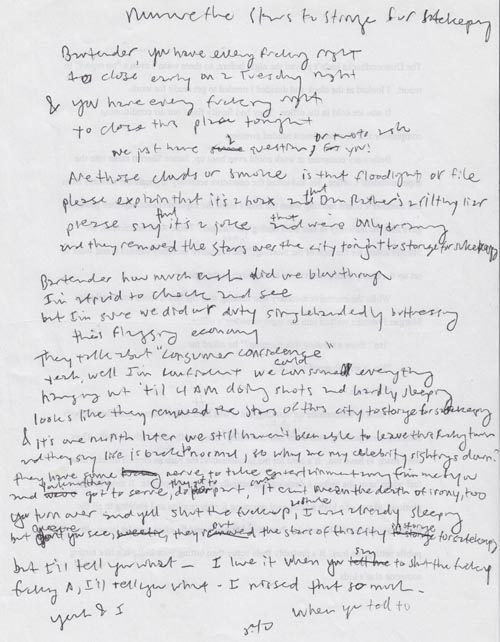 the Stars to Storage for Safekeeping
Bartender you have every fucking right
to close early on a Tuesday night
& you have every fucking right
to close this place tonight
we just have a question, or two to ask for you!
Are those clouds or smoke is that floodlight or fire
please explain that it's a hoax and that Dan Rather's a filthy liar
please say that it's a joke and that we're only dreaming
and they removed the stars over the city tonight to storage for safekeeping
Bartender how much cash did we blow through
I'm afraid to check and see
but I'm sure we did our duty singlehandedly buttressing
this flagging economy
They talk about "consumer confidence"
yeah, well I'm confident we could consume everything
hanging out 'til 4 AM doing shots and hardly sleeping
looks like they removed the stars of this city to storage for safekeeping
& it's one month later we still haven't been able to leave this fucking town
and they say life is back to normal, so why are my celebrity sightings down?
they have some nerve, to take entertainment away from me & you
and got to serve, do their part, it can't mean the death of irony, too
you turn over and yell shut the fuck up, I was already sleeping
but can't you see, they the stars of this city in storage for safekeeping
but I'll tell you what – I love it when you say to shut the fucking
fucking A, I'll tell you what – I missed that so much –
yeah & I
when you tell to